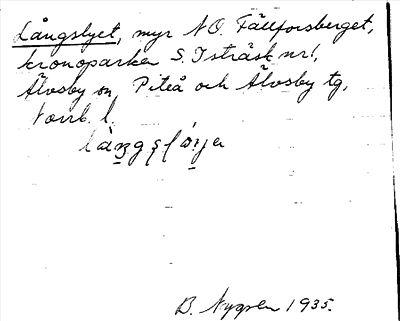 Långslyet, myr N.O. Fällforsberget,
kronoparken S. Isträsk nr 1,
Älvsby sn, Piteå och Älvsby tg,
Norrb. l.
B. Nygren 1935.